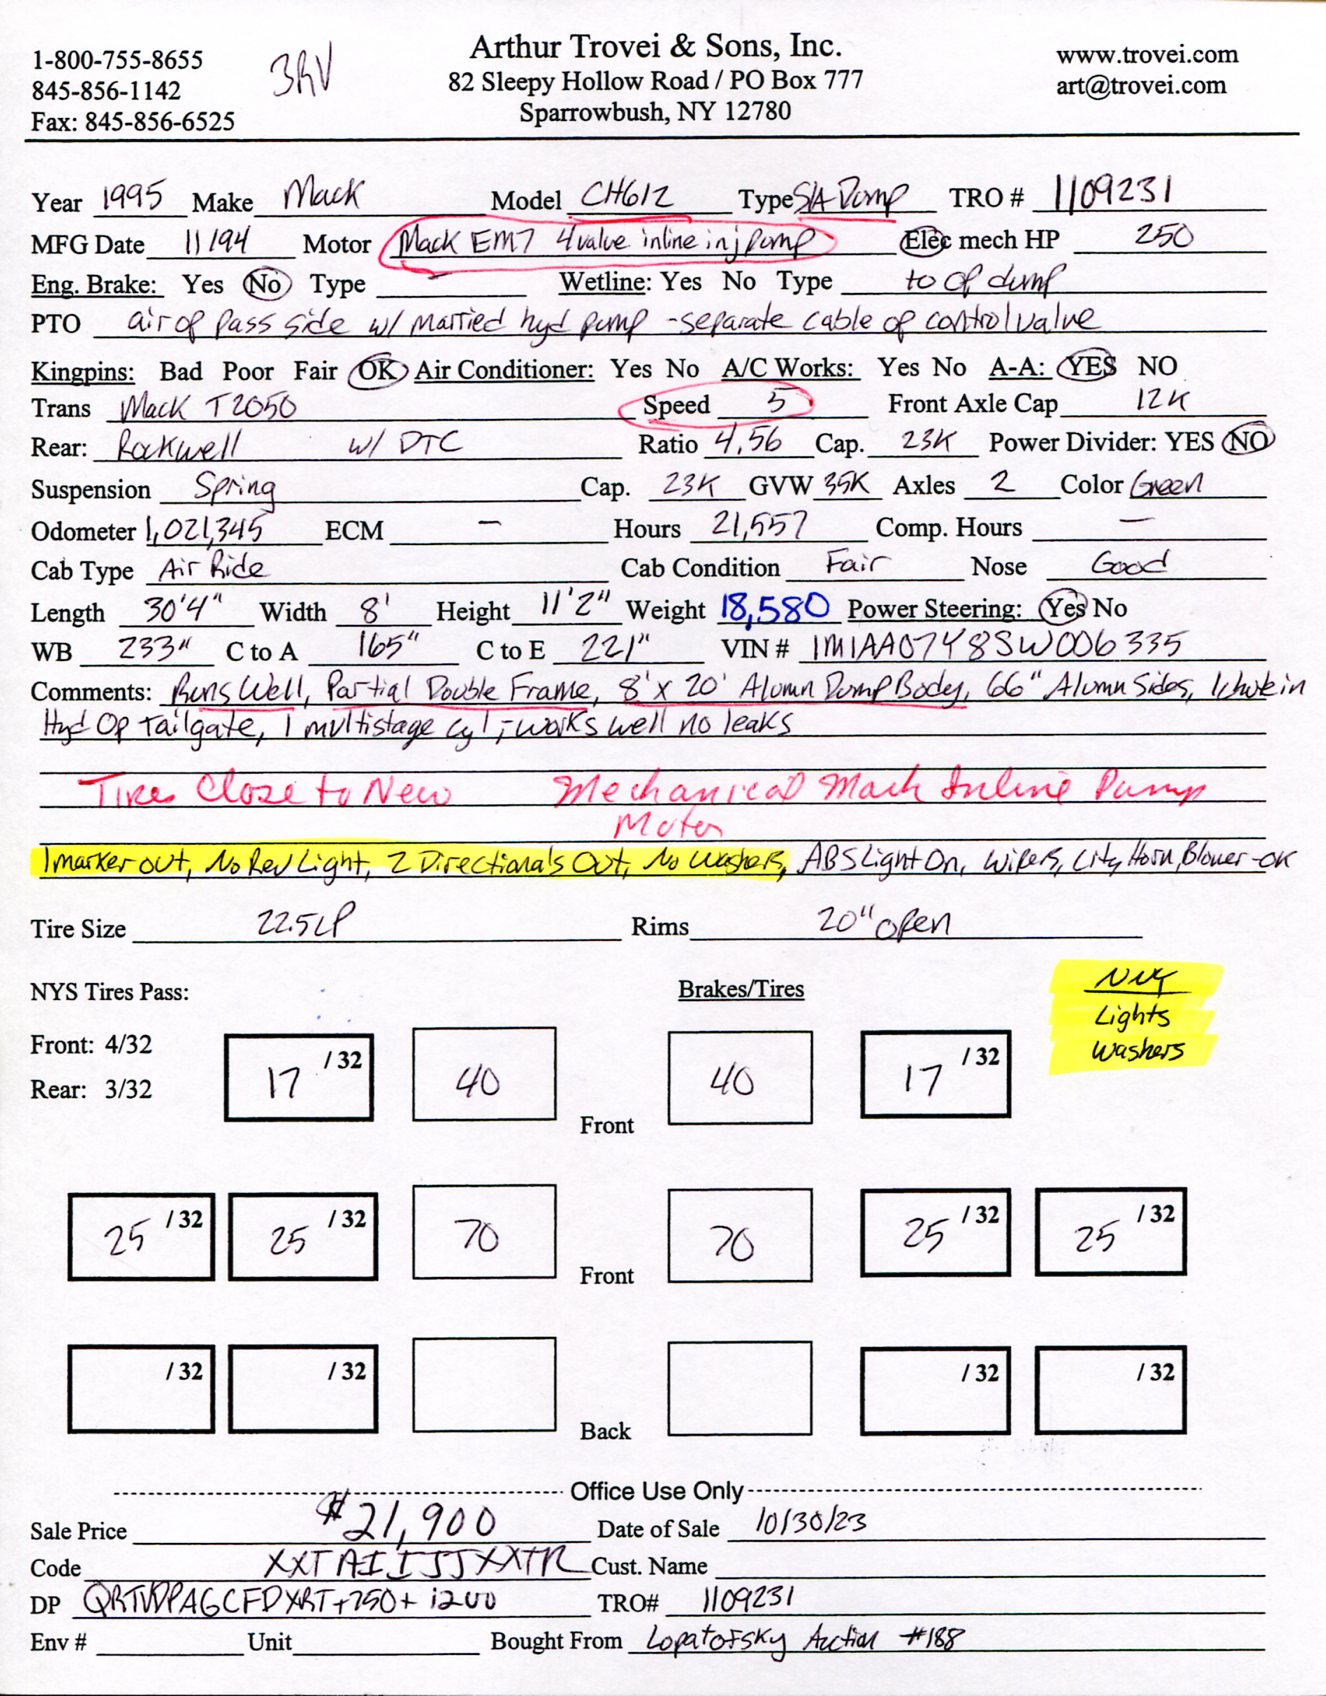 1-800-755-8655
845-856-1142
Fax: 845-856-6525
Arthur Trovei & Sons, Inc.
82 Sleepy Hollow Road / PO Box 777
Sparrowbush, NY 12780
www.trovei.com
art@trovei.com
Year 1995 Make Mack Model CH612 Type S/A Dump TRO # 1109231
MFG Date 11/94 Motor Mack EM7 4 valve inline inj pump Elec mech HP 250
Eng. Brake: Yes No Type Wetline: Yes No Type to op dump
PTO air op pass side w/ married hyd pump - separate cable op control valve
Kingpins: Bad Poor Fair OK Air Conditioner: Yes No A/C Works: Yes No A-A: YES NO
Trans Mack T2050 Speed 5 Front Axle Cap 12K
Rear: Rockwell w/ DTC Ratio 4.56 Cap. 23K Power Divider: YES NO
Suspension Spring Cap. 23K GVW 35K Axles 2 Color Green
Odometer 1,021,345 ECM — Hours 21,557 Comp. Hours —
Cab Type Air Ride Cab Condition Fair Nose Good
Length 30'4" Width 8' Height 11'2" Weight 18,580 Power Steering: Yes No
WB 233" C to A 165" C to E 221" VIN # 1M1AA0748SW006335
Comments: Runs Well, Partial Double Frame, 8' x 20' Alumn Dump Body, 66" Alumn Sides, 1 chute in
Hyd Op Tailgate, 1 multistage cyl; works well no leaks
Tires Close to New Mechanical Mack Inline Pump
Motor
1 marker out, No Rev Light, 2 Directionals Out, No Washers, ABS Light On, Wipers, City Horn, Blower-OK
Tire Size 22.5LP Rims 20" open
NYS Tires Pass: Brakes/Tires
Lights
Washers
Front: 4/32
Rear: 3/32
17 /32 40 Front 40 17 /32
25 /32 25 /32 70 Front 70 25 /32 25 /32
/32 /32 Back /32 /32
Office Use Only
Sale Price $21,900 Date of Sale 10/30/23
Code XXTAIIJJXXTR Cust. Name
DP +750+ 1200 TRO# 1109231
Env # Unit Bought From Lopatofsky Auction #188